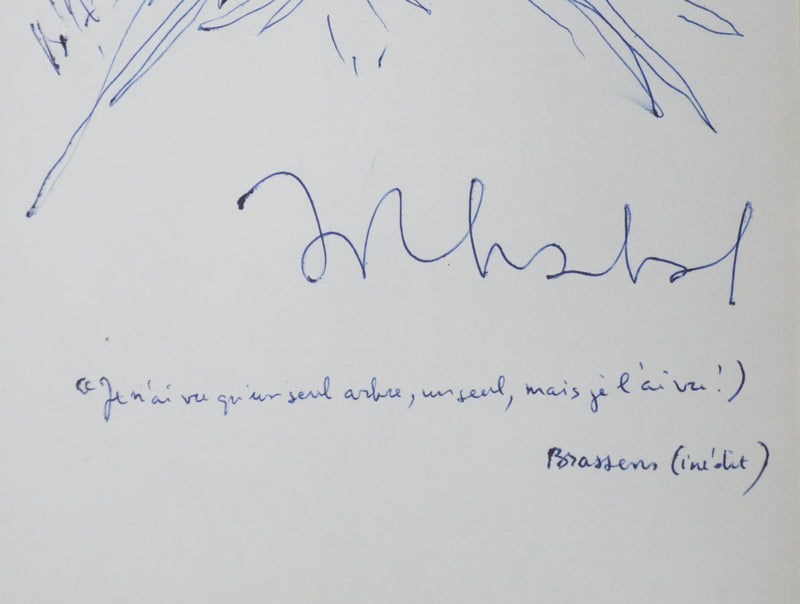 “Je n'ai vu qu'un seul arbre, un seul, mais je l'ai vu !)
Brassens (inédit)